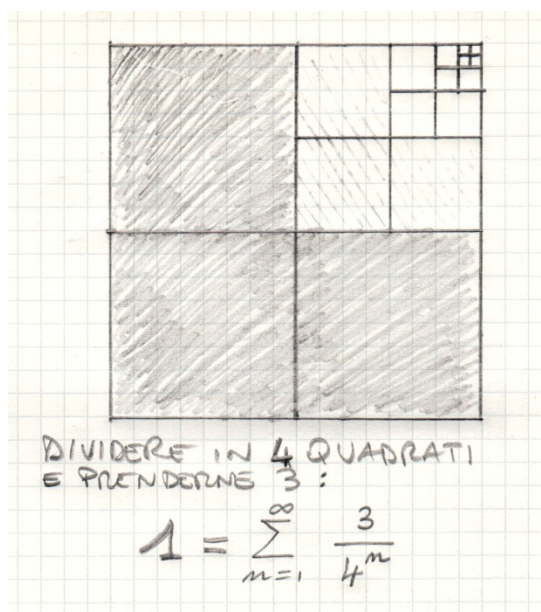 DIVIDERE IN 4 QUADRATI
E PRENDERNE 3 :
1 = ∞ ∑ n=1 3/4^n